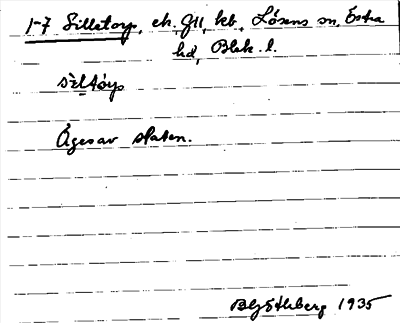 1-7 Silletorp, ek. G11, kb, Lösens sn, Östra
hd, Blek. l.
siltóp
Äges av staten.
1935